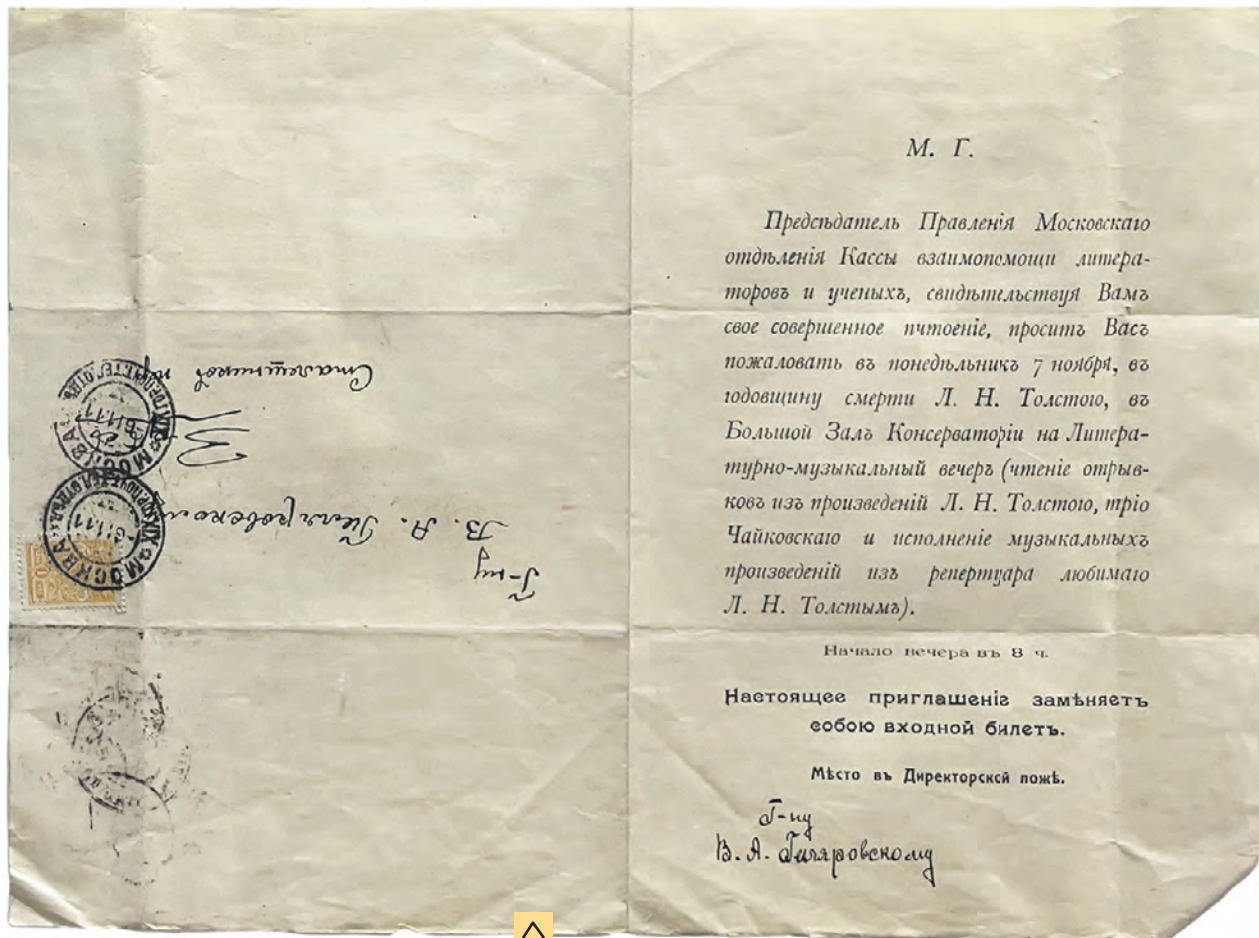 М. Г.
Предсѣдатель Правленія Московскаго
отдѣленія Кассы взаимопомощи литера-
торовъ и ученыхъ, свидѣтельствуя Вамъ
свое совершенное пчтоеніе, проситъ Васъ
пожаловать въ понедѣльникъ 7 ноября, въ
годовщину смерти Л. Н. Толстого, въ
Большой Залъ Консерваторіи на Литера-
турно-музыкальный вечеръ (чтеніе отрыв-
ковъ изъ произведеній Л. Н. Толстого, тріо
Чайковскаго и исполненіе музыкальныхъ
произведеній изъ репертуара любимаго
Л. Н. Толстымъ).
Начало вечера въ 8 ч.
Настоящее приглашеніе замѣняетъ
собою входной билетъ.
Мѣсто въ Директорской ложѣ.
Г-ну
В. А. Гиляровскому
Г-ну
В. А. Гиляровскому
Столешников пер
МОСКВА
6.11.11
МОСКВА
6.11.11